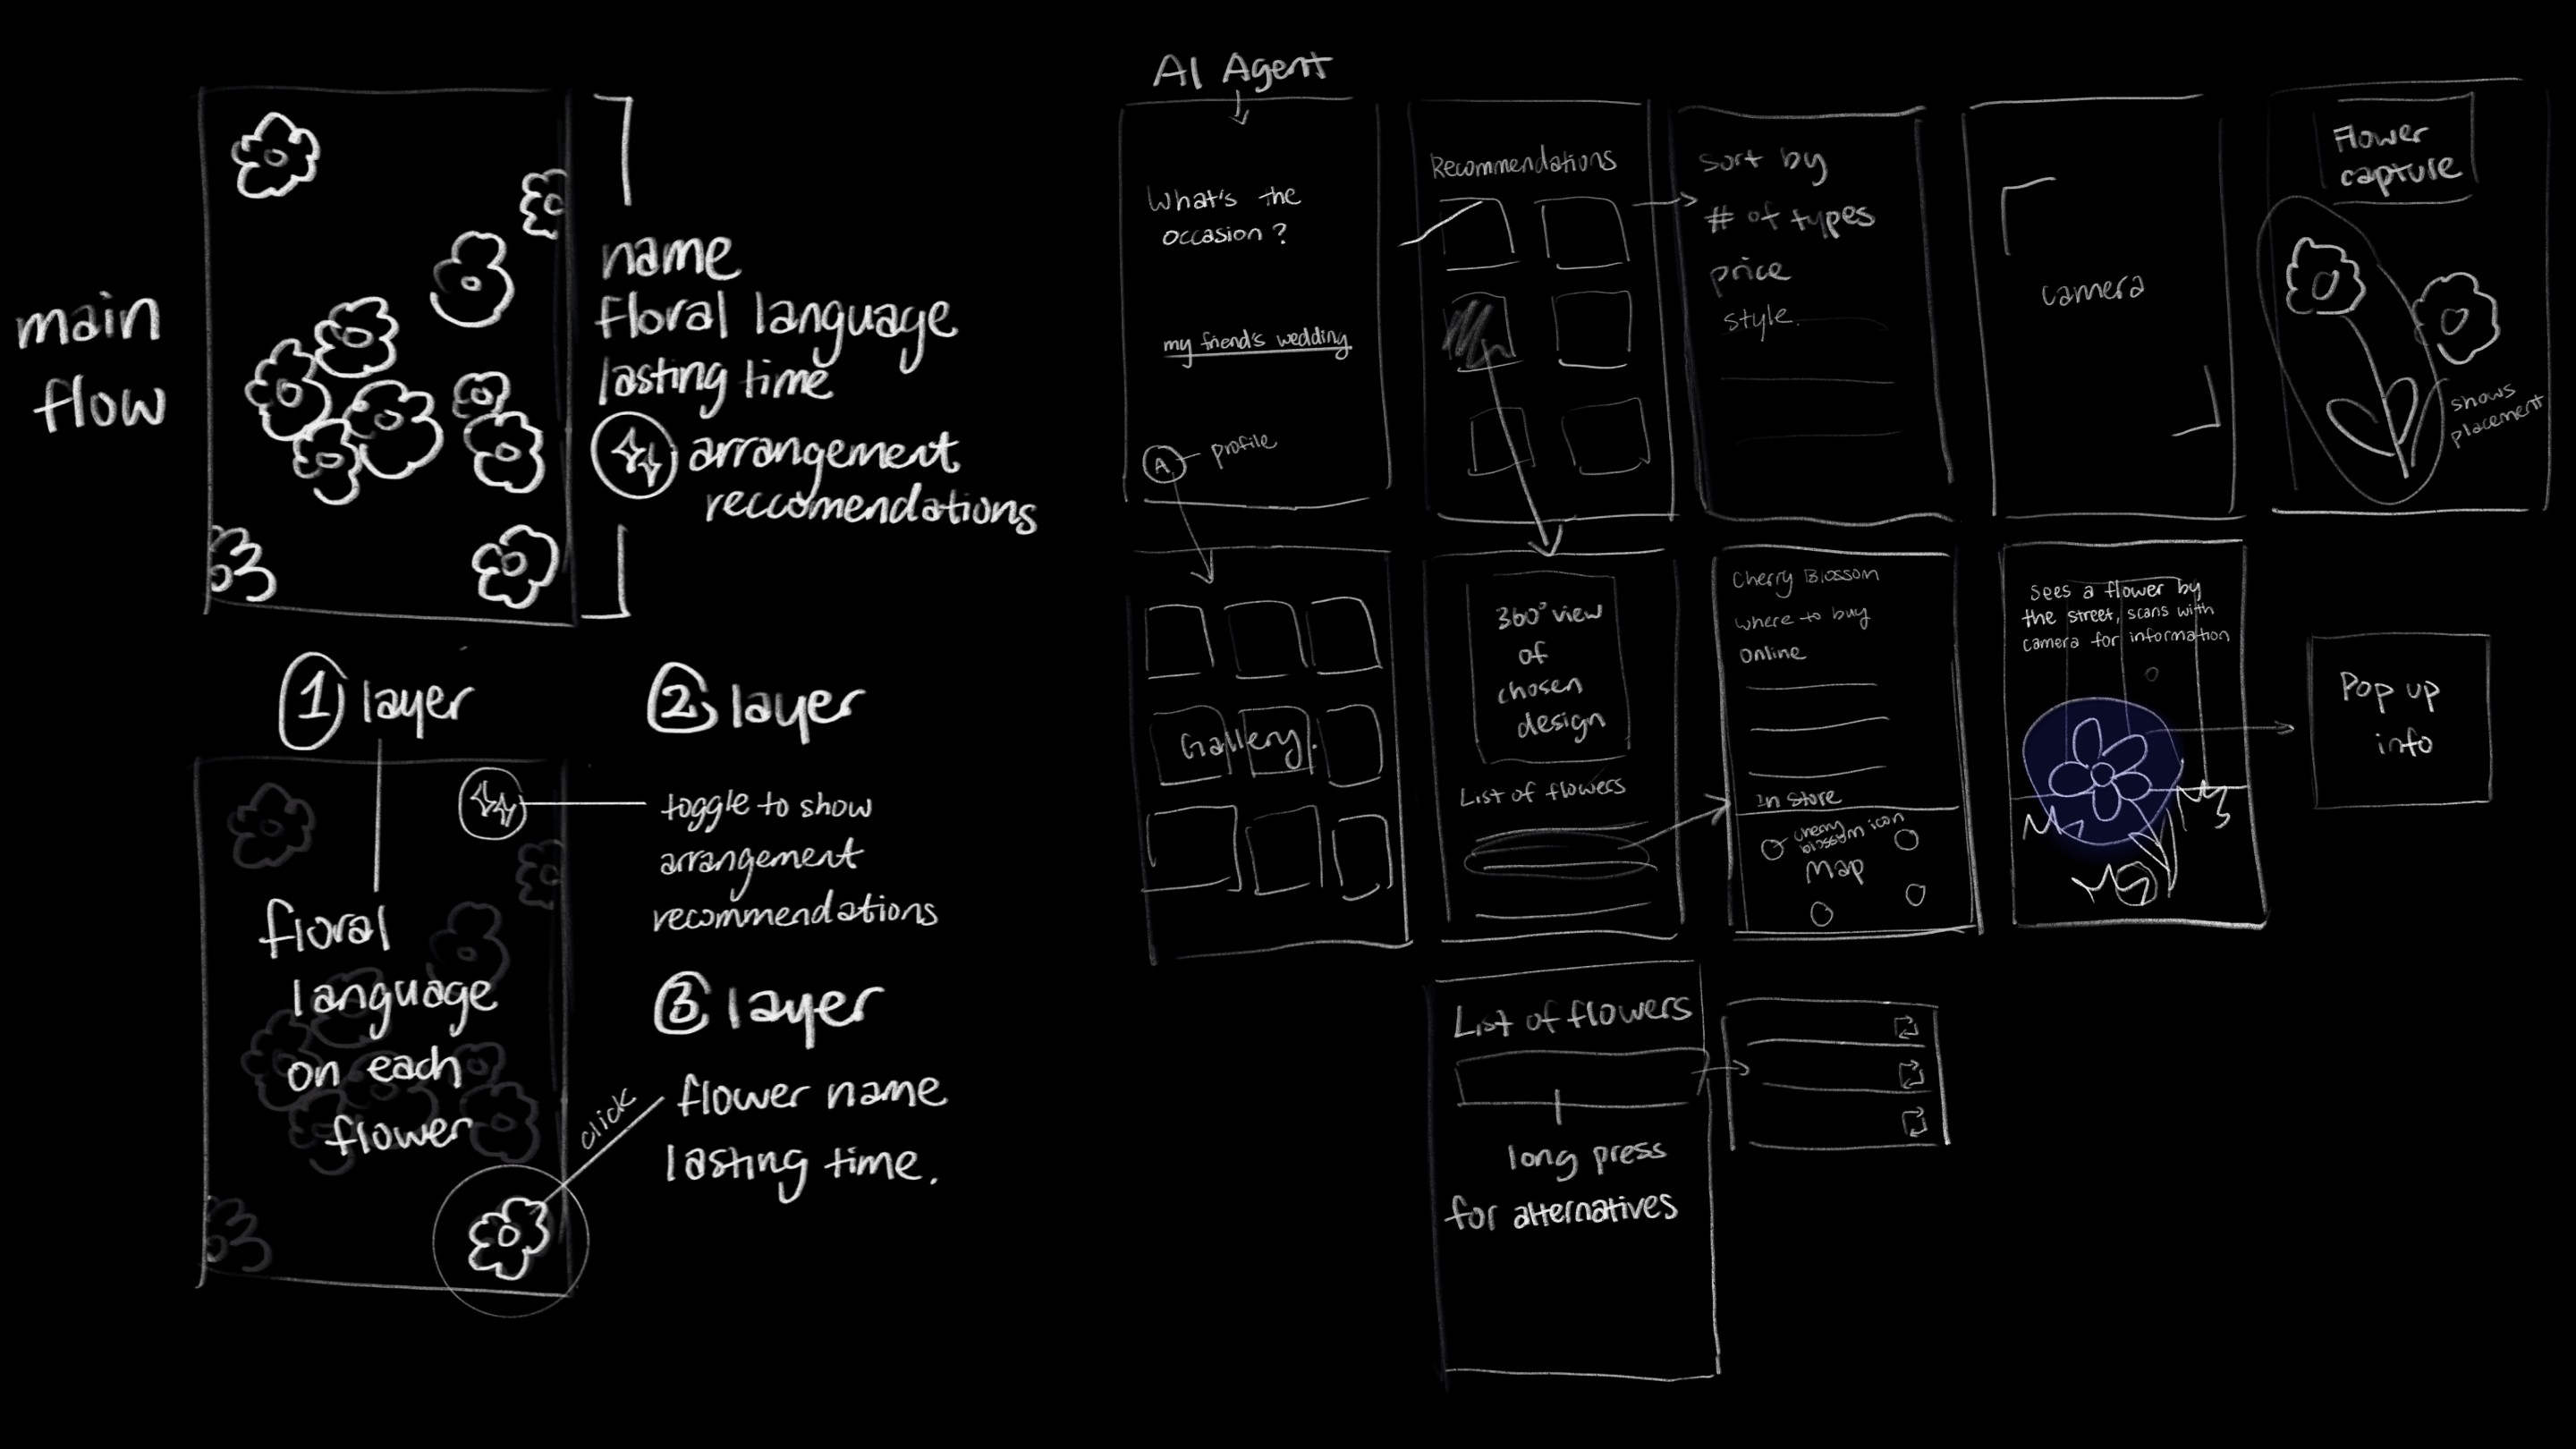 main
flow
name
floral language
lasting time
arrangement
reccomendations
1 layer
floral
language
on each
flower
2 layer
toggle to show
arrangement
recommendations
3 layer
click
flower name
lasting time.
AI Agent
What's the
occasion?
my friend's wedding
A
profile
Recommendations
sort by
# of types
price
style.
camera
Flower
capture
shows
placement
Gallery.
360° view
of
chosen
design
List of flowers
Cherry Blossom
where to buy
online
In store
cherry
blossom icon
Map
Sees a flower by
the street, scans with
camera for information
Pop up
info
List of flowers
long press
for alternatives